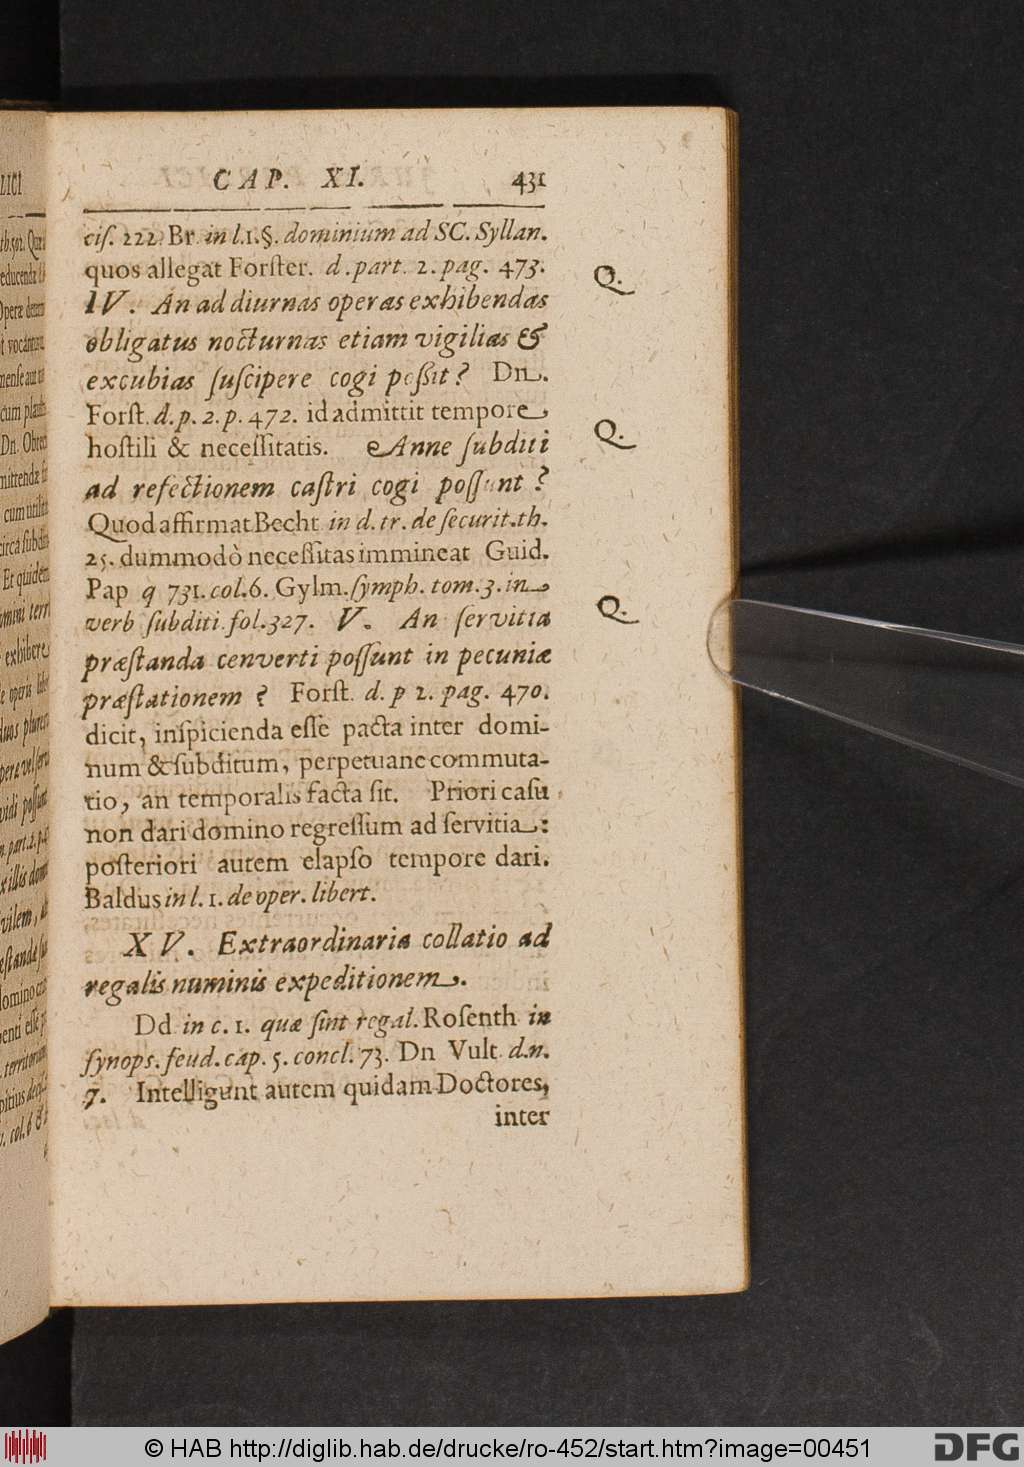 CAP. XI. 431
ciſ. 222. Br. in l.1.§. dominium ad SC. Syllan.
quos allegat Forſter. d. part. 2. pag. 473.
IV. An ad diurnas operas exhibendas
obligatus nocturnas etiam vigilias &
excubias ſuſcipere cogi poßit? Dn.
Forſt. d. p. 2. p. 472. id admittit tempore
hoſtili & neceſſitatis. Anne ſubditi
ad refectionem caſtri cogi poſſunt?
Quod affirmat Becht in d. tr. de ſecurit. th.
25. dummodò neceſſitas immineat Guid.
Pap q 731. col. 6. Gylm. ſymph. tom. 3. in
verb ſubditi fol. 327. V. An ſervitia
præſtanda cenverti poſſunt in pecuniæ
præſtationem? Forſt. d. p 2. pag. 470.
dicit, inſpicienda eſſe pacta inter domi-
num & ſubditum, perpetuane commuta-
tio, an temporalis facta ſit. Priori caſu
non dari domino regreſſum ad ſervitia:
poſteriori autem elapſo tempore dari.
Baldus in l. 1. de oper. libert.
XV. Extraordinaria collatio ad
regalis numinis expeditionem.
Dd in c. 1. quæ ſint regal. Roſenth in
ſynopſ. feud. cap. 5. concl. 73. Dn Vult. d. n.
7. Intelligunt autem quidam Doctores,
inter
Q.
Q.
Q.
© HAB http://diglib.hab.de/drucke/ro-452/start.htm?image=00451
DFG